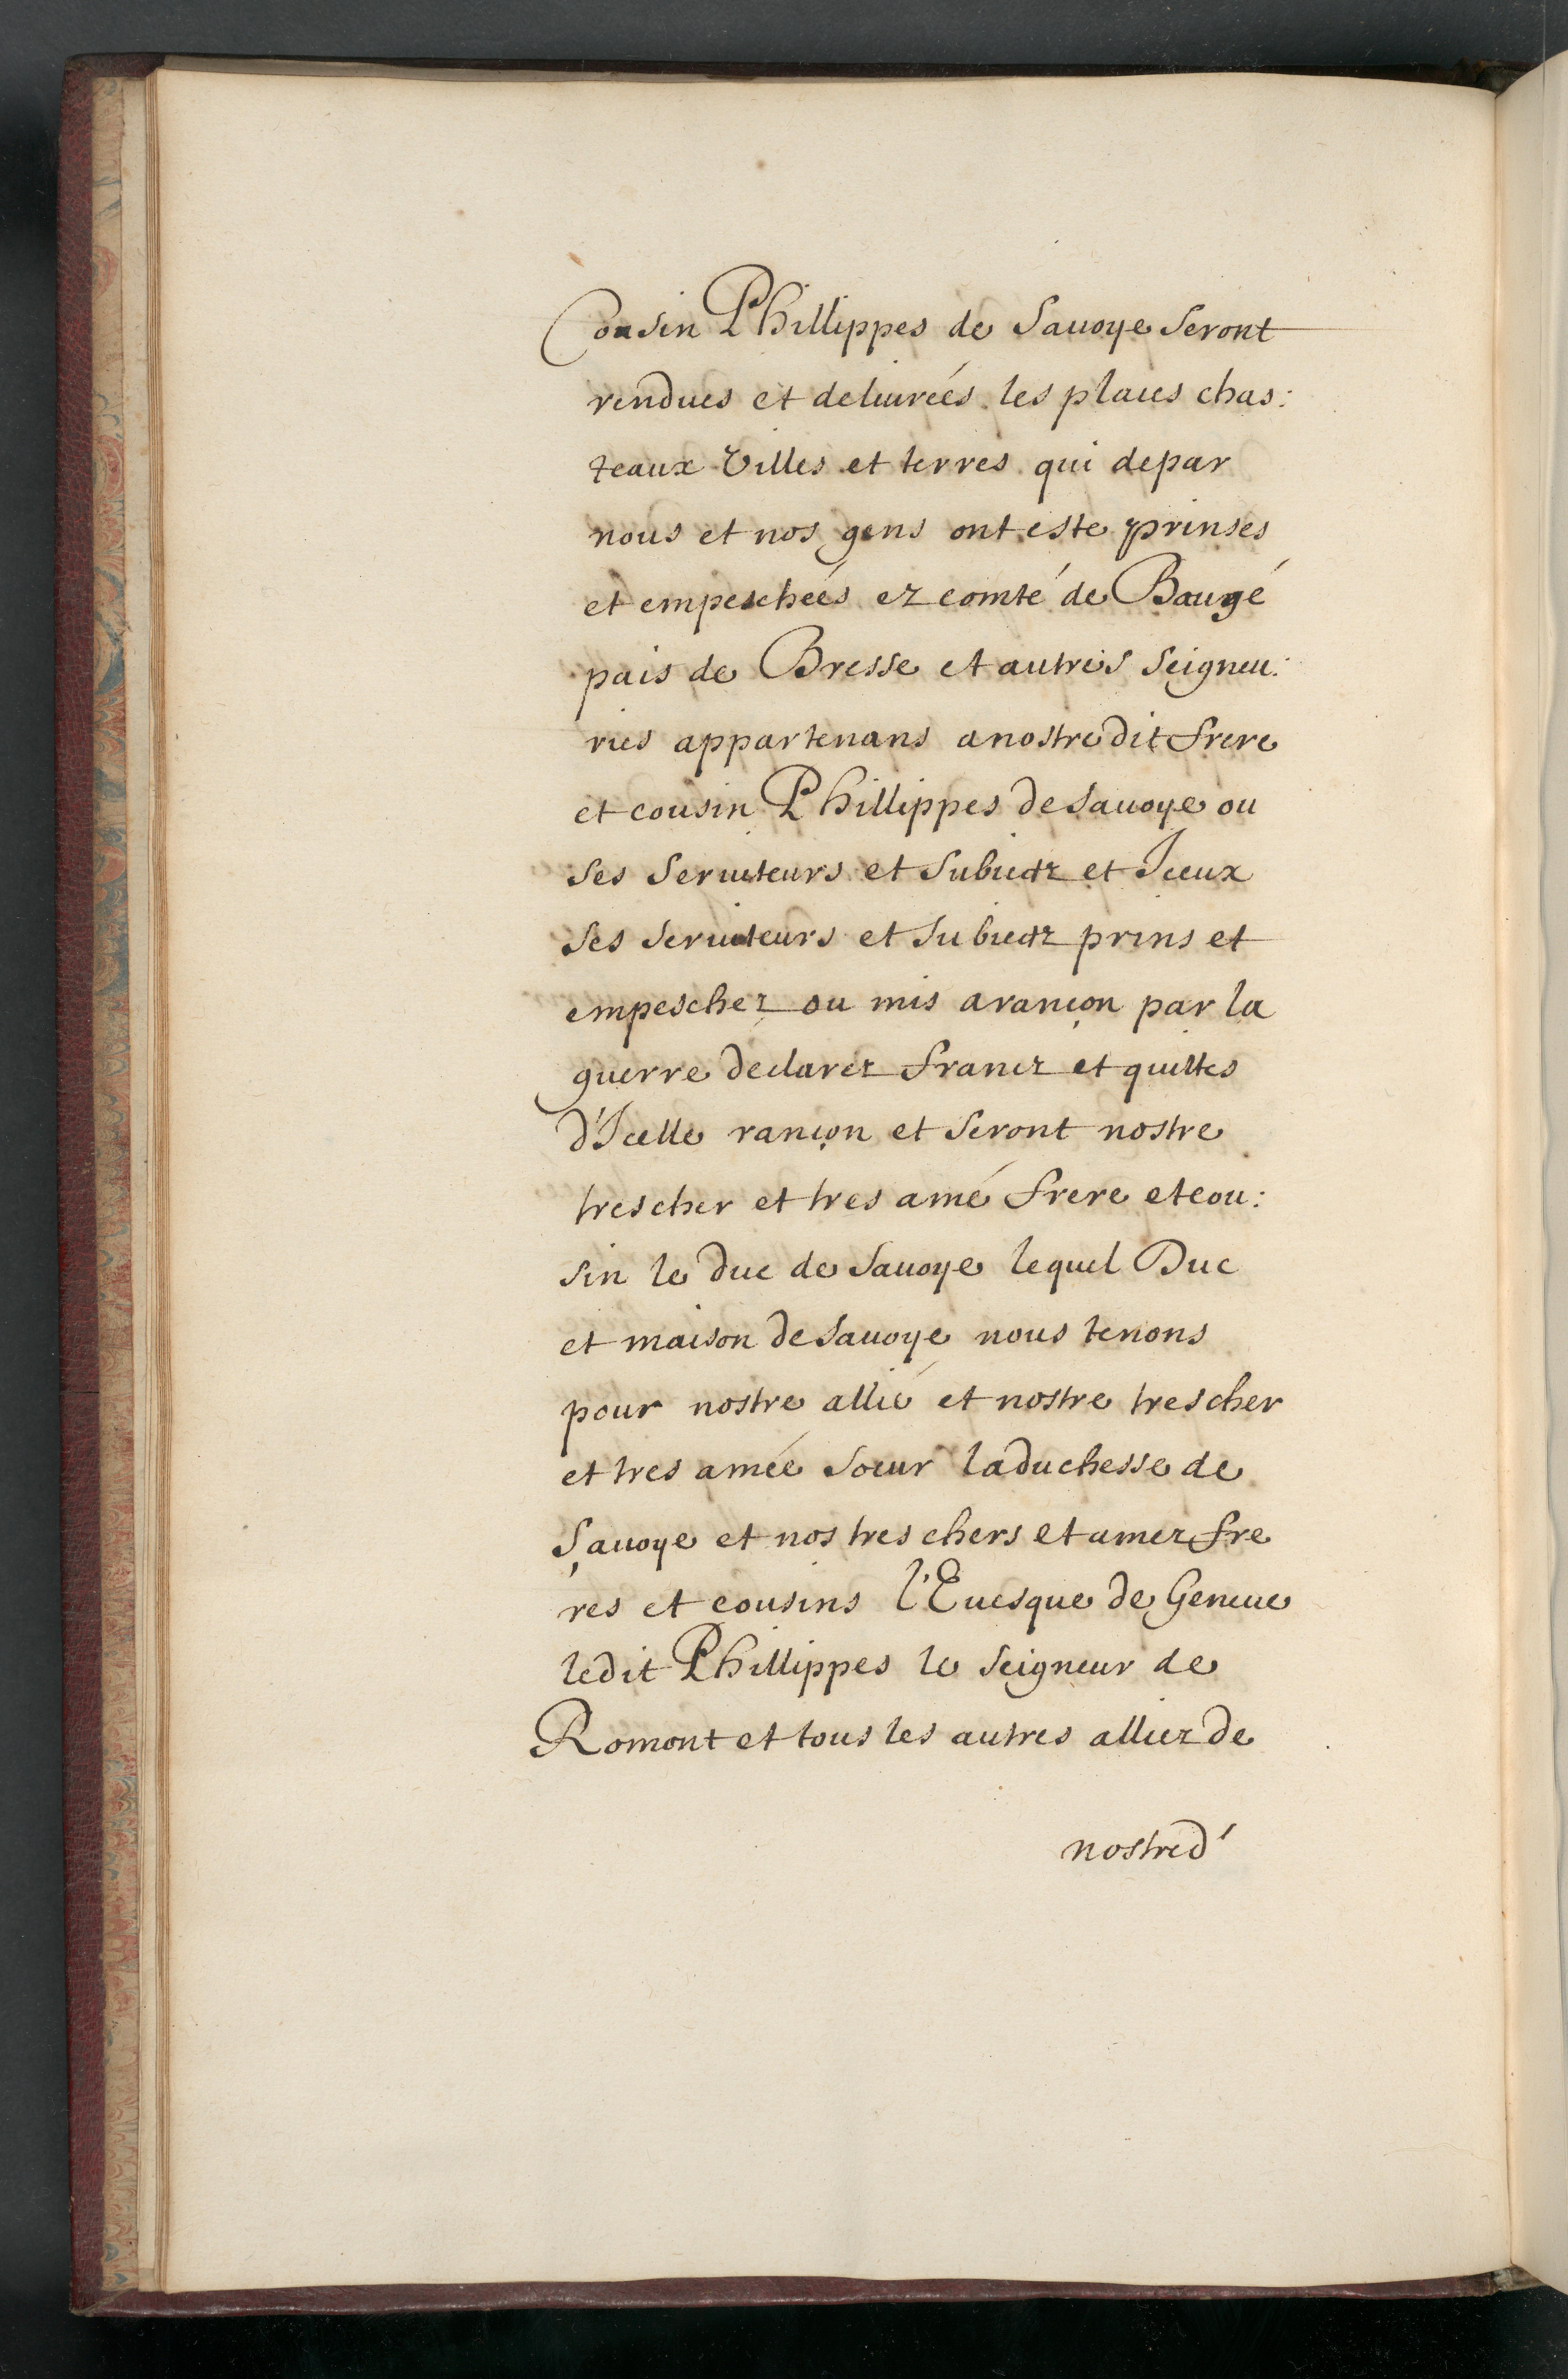 Cousin Phillippes de Sauoye seront
rendues et deliurées les places chas:
teaux Villes et terres qui depar
nous et nos gens ont este prinses
et empeschées ez comté de Baugé
pais de Bresse et autres seigneu:
ries appartenans a nostredit frere
et cousin Phillippes de Sauoye ou
ses seruiteurs et subiectz et Iceux
ses seruiteurs et subiectz prins et
empeschez ou mis a rançon par la
guerre declarez francz et quittes
d'Icelle rançon et seront nostre
trescher et tres amé frere et cou:
sin le duc de Sauoye lequel Duc
et maison de Sauoye nous tenons
pour nostre allié et nostre trescher
et tres amée soeur la duchesse de
Sauoye et nos tres chers et amez fre
res et cousins l'Euesque de Geneue
ledit Phillippes le seigneur de
Romont et tous les autres alliez de
nostred'